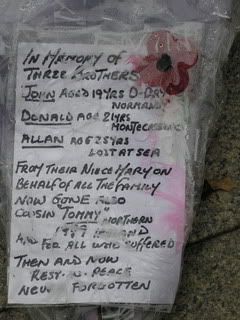 IN MEMORY OF
THREE BROTHERS
JOHN AGED 19YRS D-DAY
NORMANDY
DONALD AGE 21YRS
MONTECASSINO
ALLAN AGE 25YRS
LOST AT SEA
FROM THEIR NIECE MARY ON
BEHALF OF ALL THE FAMILY
NOW GONE ALSO
COUSIN "TOMMY" NORTHERN
IRELAND
AND FOR ALL WHO SUFFERED
THEN AND NOW
REST IN PEACE
NEVER FORGOTTEN